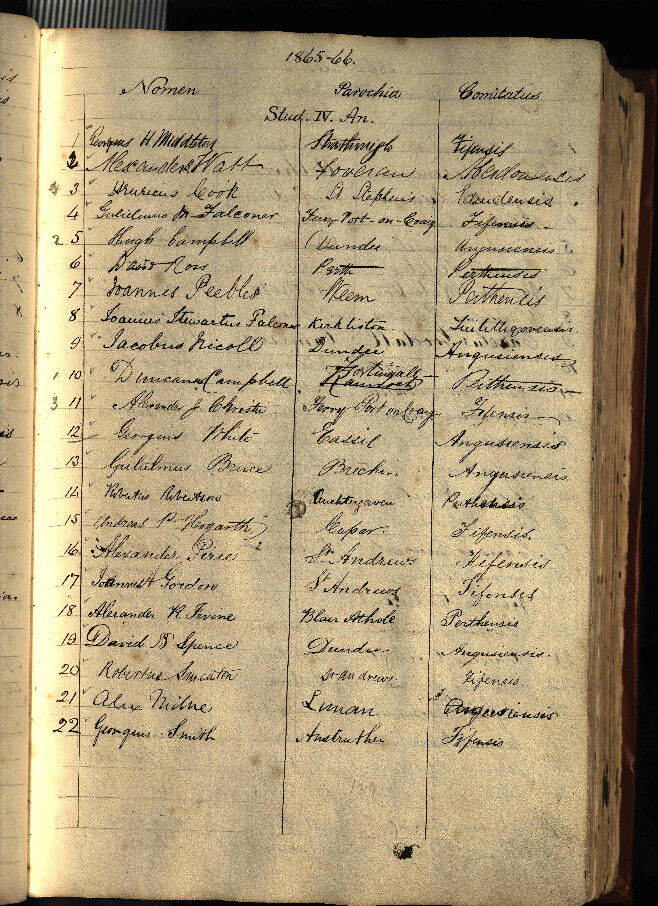 1865-66.
Nomen Parochia Comitatus
Stud. IV. An.
1 Georgius H Middleton Strathmiglo Fifensis
2 Alexander Watt Foveran Aberdonensis
3 Henricus Cook St Stephens Laudensis
4 Gulielmus M Falconer Ferry-Port-on-Craig Fifensis
2 5 Hugh Campbell Dundee Angusiensis
6 David Ross Perth Perthensis
7 Joannes Peebles Weem Perthensis
8 Joannes Stewartus Falconer Kirkliston Linlithgovensis
9 Jacobus Nicoll Dundee Angusiensis
1 10 Duncanus Campbell Fortingall Rannoch Perthensis
3 11 Alexander J. Christie Ferry-Port on Craig Fifensis
12 Georgius White Angusiensis
13 Gulielmus Bruce Brechin Angusiensis
14 Robertus Robertson Auchtergaven Perthensis
15 Andreas P. Hogarth Cupar. Fifensis.
16 Alexander Pirie St Andrews Fifensis
17 Joannes Gordon St Andrews Fifensis
18 Alexander R Irvine Blair Athole Perthensis
19 David N Spence Dundee Angusiensis.
20 Robertus Smeaton St Andrews Fifensis
21 Alex Milne Lunan Angusiensis
22 Georgius Smith Anstruther Fifensis